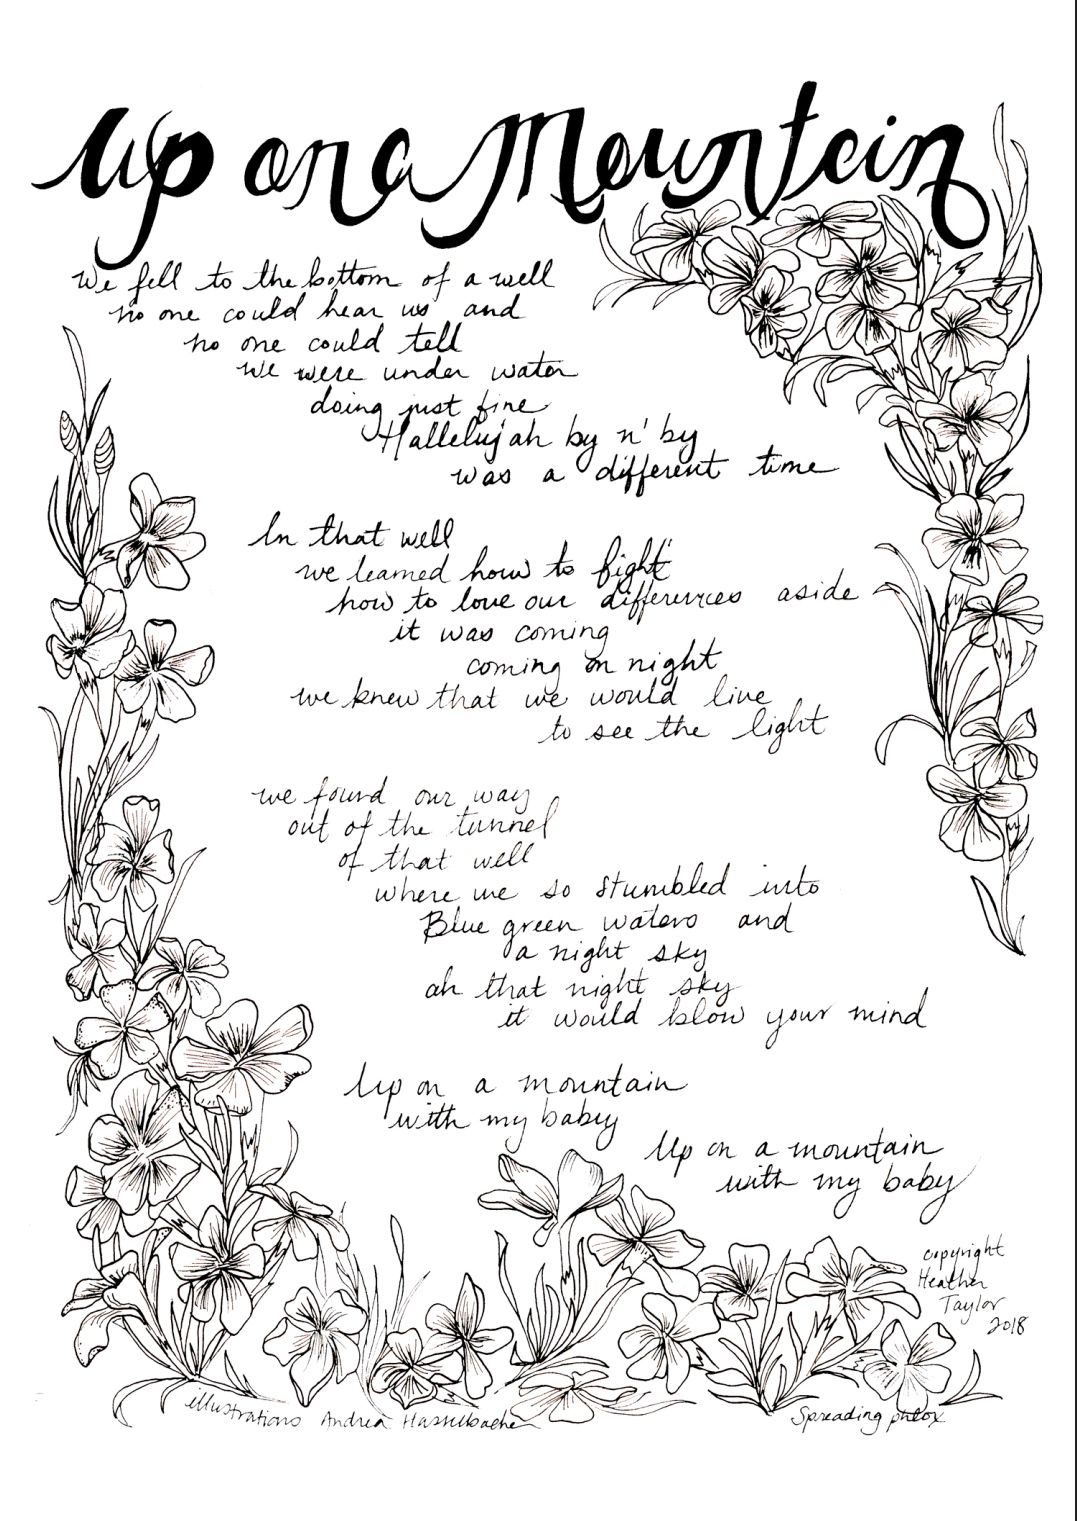 Up on a Mountain
We fell to the bottom of a well
no one could hear us and
no one could tell
We were under water
doing just fine
Hallelujah by n' by
was a different time
In that well
we learned how to fight
how to love our differences aside
it was coming
coming on night
we knew that we would live
to see the light
we found our way
out of the tunnel
of that well
where we so stumbled into
Blue green waters and
a night sky
ah that night sky
it would blow your mind
Up on a mountain
with my baby
Up on a mountain
with my baby
copyright
Heather
Taylor
2018
illustrations Andrea Hasselbacher
Spreading phlox